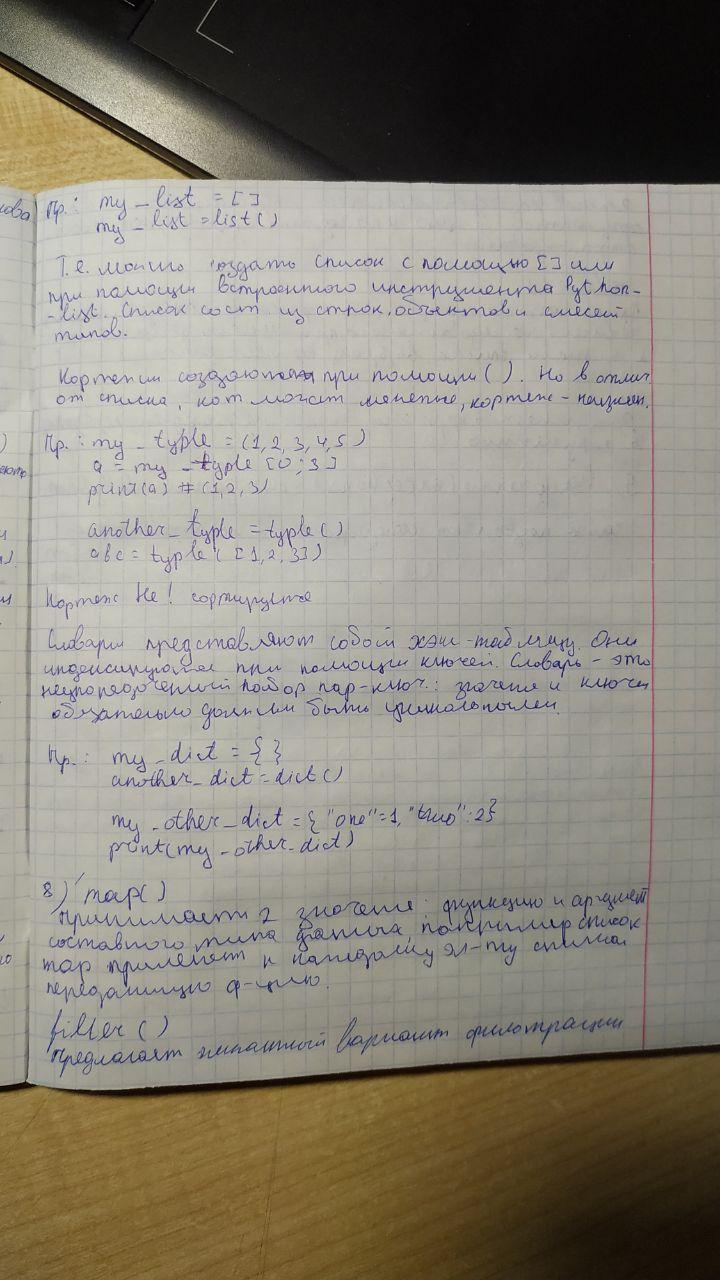 Пр.: my_list = []
my_list = list()
Т.е. можно создать список с помощью [] или
при помощи встроенного инструмента Python-
-list. Список сост из строк, объектов и смесей
типов.
Кортежи создаются при помощи (). Но в отлич.
от списка, кот может меняться, кортеж - неизмен.
Пр.: my_typle = (1, 2, 3, 4, 5)
a = my_typle [0:3]
print(a) # (1, 2, 3)
another_typle = typle()
abc = typle([1, 2, 3])
Кортеж Не! сортируется
Словари представляют собой хэш-таблицу. Они
индексируются при помощи ключей. Словарь - это
неупорядоченный набор пар-ключ: значение и ключи
обязательно должны быть уникальными.
Пр.: my_dict = {}
another_dict = dict()
my_other_dict = {"one"=1, "two":2}
print(my_other_dict)
8) map()
принимает 2 значение: функцию и аргумент
составного типа данных, например список
map применяет к каждому эл-ту списка
переданную ф-цию.
filter()
предлагает элегантный вариант фильтрации